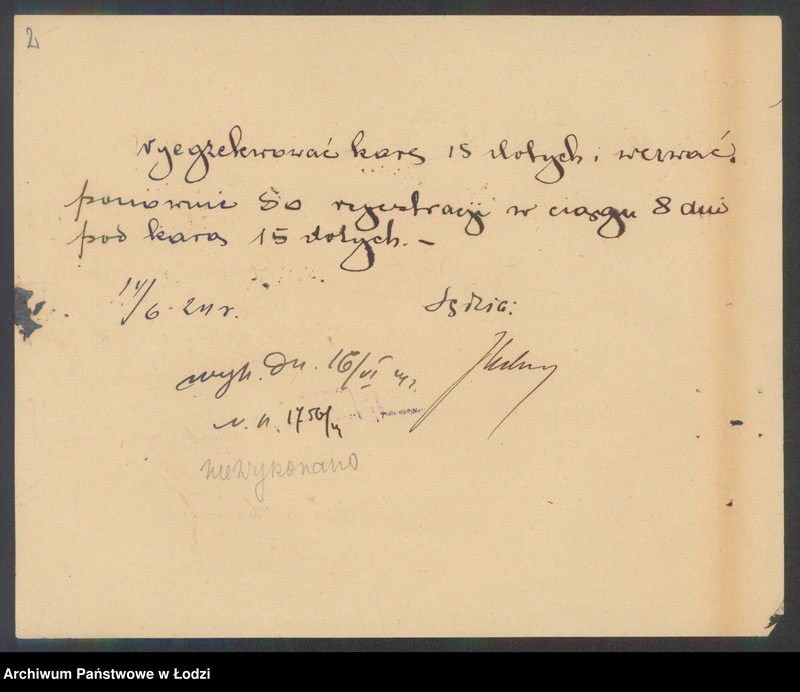 2
Wyegzekwować karę 15 złotych i wezwać
ponownie do rejestracji w ciągu 8 dni
pod karą 15 złotych. –
14/6. 24 r.
Sędzia:
wyk. dn. 16/VI 24 r.
N. k. 1756/
niewykonano
Archiwum Państwowe w Łodzi